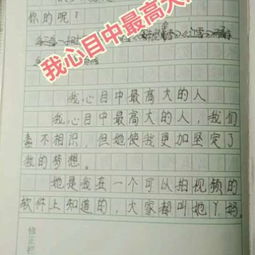 你的呢！
我心目中最高大
我心目中最高大的人
我心目中最高大的人，我们
素不相识，但她使我更加坚定了
我的梦想。
她是我在一个可以拍视频的
软件上知道的，大家都叫她丫妈
修正栏